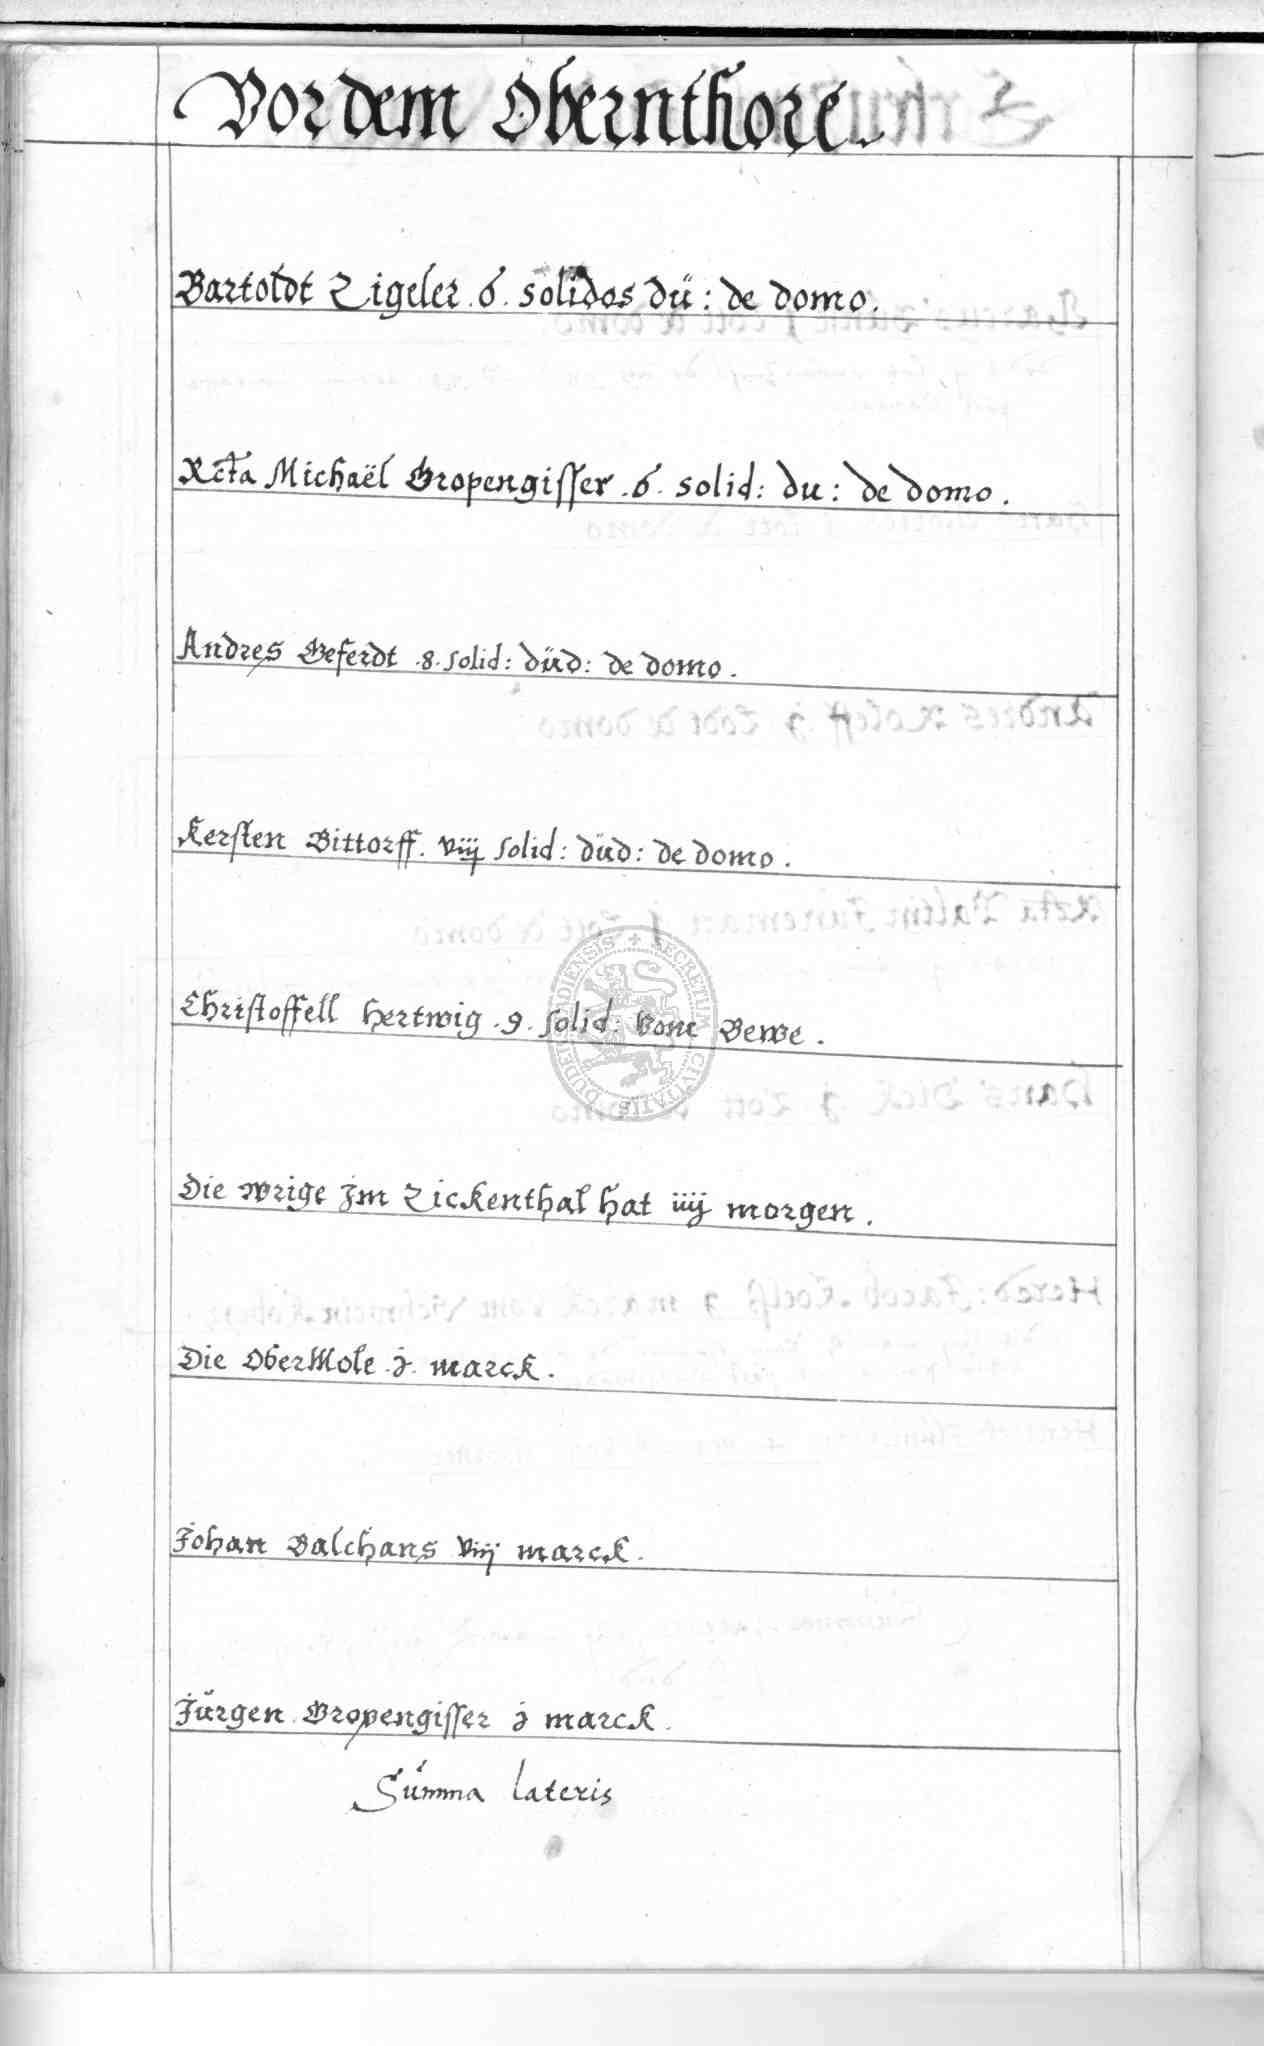 Vor dem Obernthore
Bartoldt Zigeler . 6 . solidos dü : de domo .
Rcta Michaël Gropengisser . 6 . solid : du : de domo .
Andres Geferdt . 8 . solid : düd : de domo .
Kersten Bittorff . viij solid : düd : de domo .
Christoffell Hertwig . 9 . solid : vom Gewe .
Die wrige Jm Zickenthal hat iiij morgen .
Die OberMole . j . marck .
Johan Balchans viij marck .
Jürgen Gropengisser j marck .
Summa lateris
SECRETUM CIVITATIS DUDERSTADIENSIS